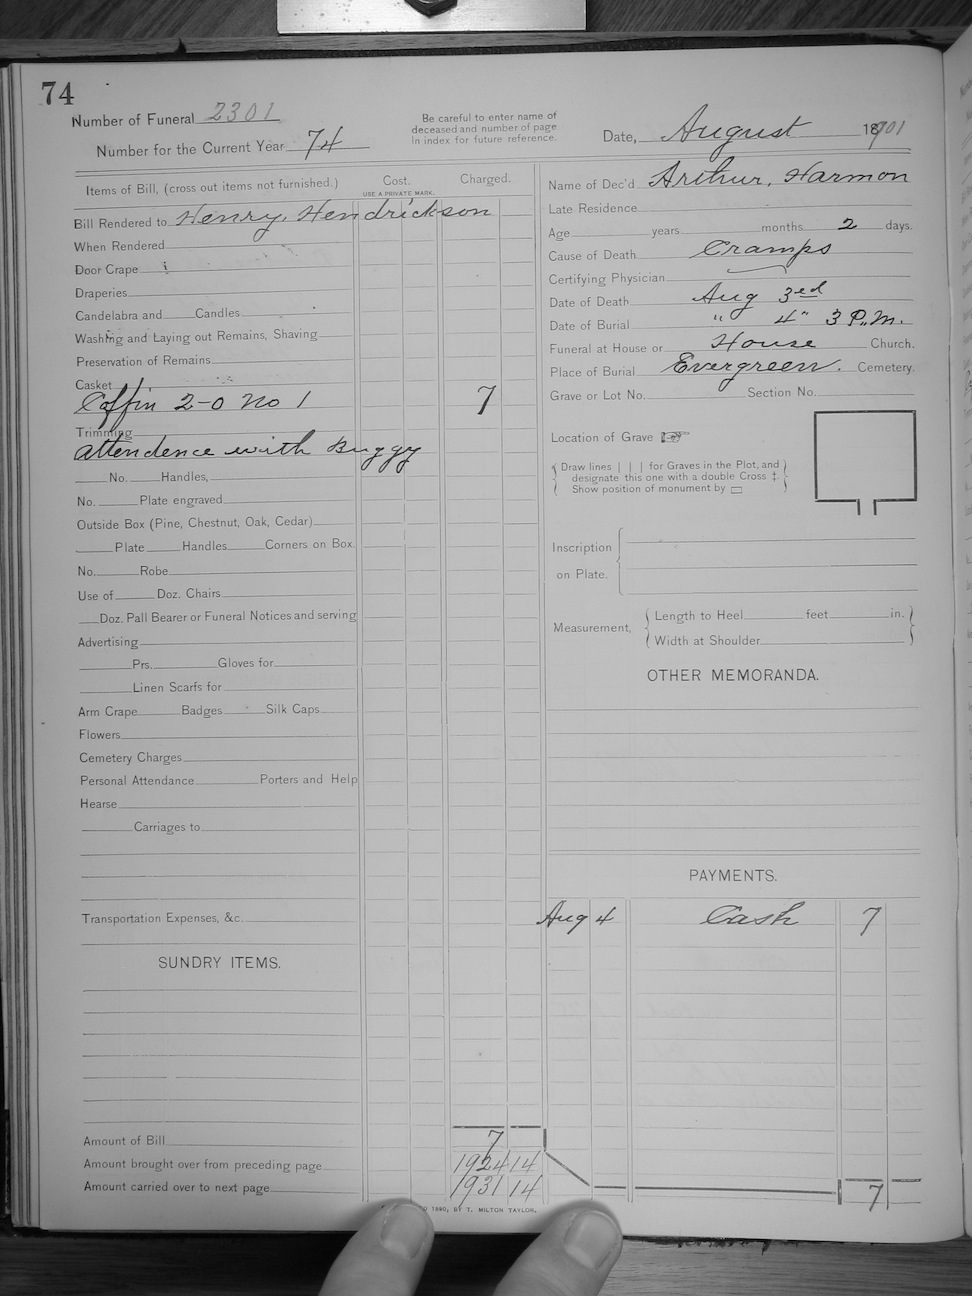 74
Number of Funeral 2301
Number for the Current Year 74
Be careful to enter name of
deceased and number of page
in index for future reference.
Date, August 1901
Items of Bill, (cross out items not furnished.)
Cost.
USE A PRIVATE MARK.
Charged.
Bill Rendered to Henry, Hendrickson
When Rendered
Door Crape
Draperies
Candelabra and Candles
Washing and Laying out Remains, Shaving
Preservation of Remains
Casket
Coffin 2-0 No 1 7
Trimming
attendence with Buggy
No. Handles,
No. Plate engraved
Outside Box (Pine, Chestnut, Oak, Cedar)
Plate Handles Corners on Box.
No. Robe
Use of Doz. Chairs
Doz. Pall Bearer or Funeral Notices and serving
Advertising
Prs. Gloves for
Linen Scarfs for
Arm Crape Badges Silk Caps
Flowers
Cemetery Charges
Personal Attendance Porters and Help
Hearse
Carriages to
Transportation Expenses, &c.
SUNDRY ITEMS.
Amount of Bill 7
Amount brought over from preceding page 1924 14
Amount carried over to next page 1931 14
Name of Dec'd Arthur, Harmon
Late Residence
Age years months 2 days.
Cause of Death Cramps
Certifying Physician
Date of Death Aug 3ed
Date of Burial " 4" 3 P.M.
Funeral at House or House Church.
Place of Burial Evergreen. Cemetery.
Grave or Lot No. Section No.
Location of Grave
Draw lines | | | for Graves in the Plot, and
designate this one with a double Cross ‡.
Show position of monument by ▭
Inscription
on Plate.
Measurement,
Length to Heel feet in.
Width at Shoulder
OTHER MEMORANDA.
PAYMENTS.
Aug 4 Cash 7
7
1890, BY T. MILTON TAYLOR.